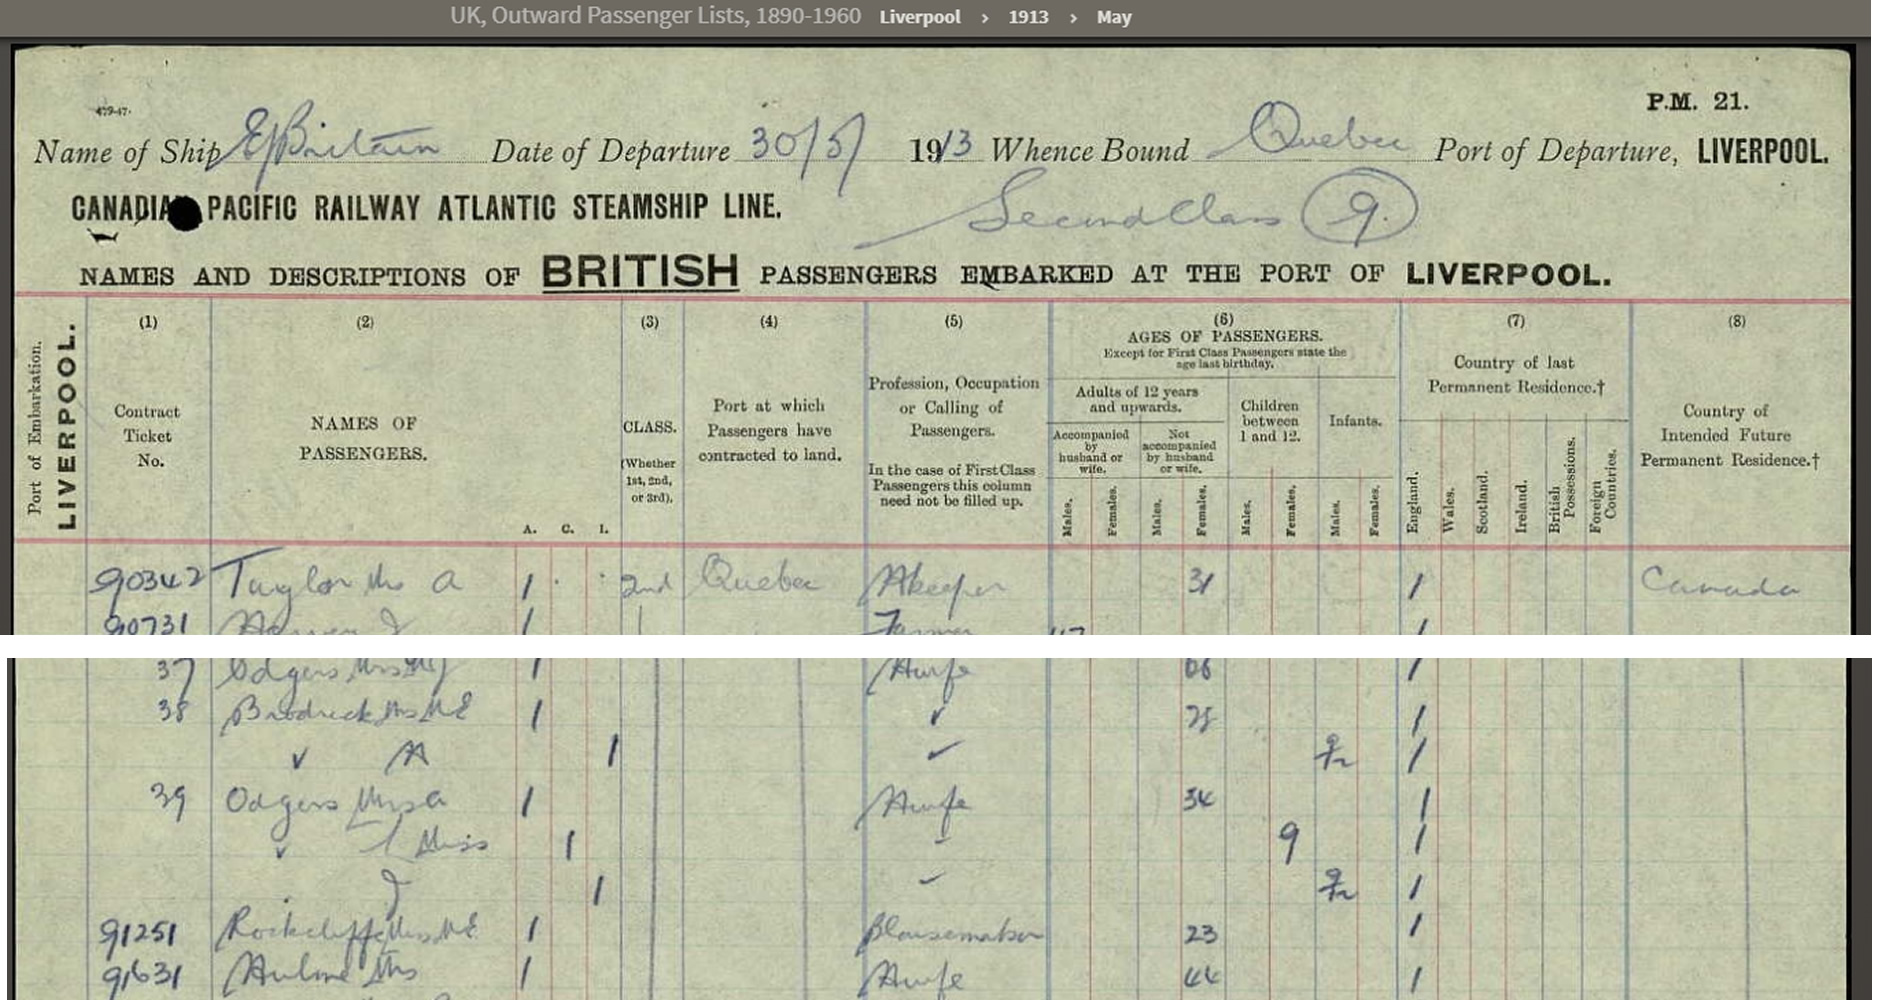 UK, Outward Passenger Lists, 1890-1960 Liverpool › 1913 › May
P.M. 21.
Name of Ship E/Britain Date of Departure 30/5/ 1913 Whence Bound Quebec Port of Departure, LIVERPOOL.
CANADIAN PACIFIC RAILWAY ATLANTIC STEAMSHIP LINE. Second Class 9.
NAMES AND DESCRIPTIONS OF BRITISH PASSENGERS EMBARKED AT THE PORT OF LIVERPOOL.
Port of Embarkation.
LIVERPOOL.
(1)
Contract
Ticket
No.
(2)
NAMES OF
PASSENGERS.
A. C. I.
(3)
CLASS.
(Whether
1st, 2nd,
or 3rd).
(4)
Port at which
Passengers have
contracted to land.
(5)
Profession, Occupation
or Calling of
Passengers.
In the case of First Class
Passengers this column
need not be filled up.
(6)
AGES OF PASSENGERS.
Except for First Class Passengers state the
age last birthday.
Adults of 12 years
and upwards.
Accompanied
by
husband or
wife.
Not
accompanied
by husband
or wife.
Children
between
1 and 12.
Infants.
Males. Females. Males. Females. Males. Females. Males. Females.
(7)
Country of last
Permanent Residence.†
England. Wales. Scotland. Ireland. British Possessions. Foreign Countries.
(8)
Country of
Intended Future
Permanent Residence.†
90342 Taylor Mrs A 1 2nd Quebec Hkeeper 31 1 Canada
90731 1 Farmer 1
37 Odgers Mrs 1 Hwife 1
38 Brodrick Mrs M E 1 28 1
1 1
39 Odgers Mrs A 1 Hwife 34 1
Miss 1 9 1
J 1 1
91251 Rockcliffe Miss M E 1 Blousemaker 23 1
91631 Hulme Mrs 1 Hwife 44 1